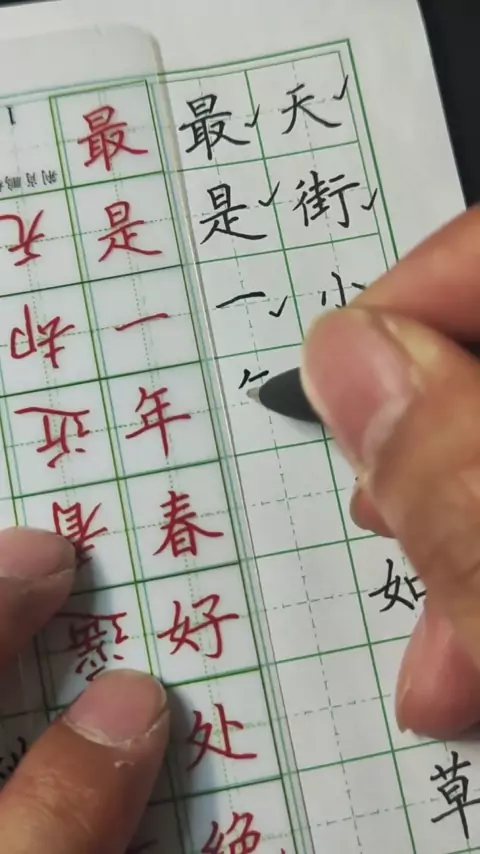 天街小如草
最是一
最是一年春好处绝
遥看近却无